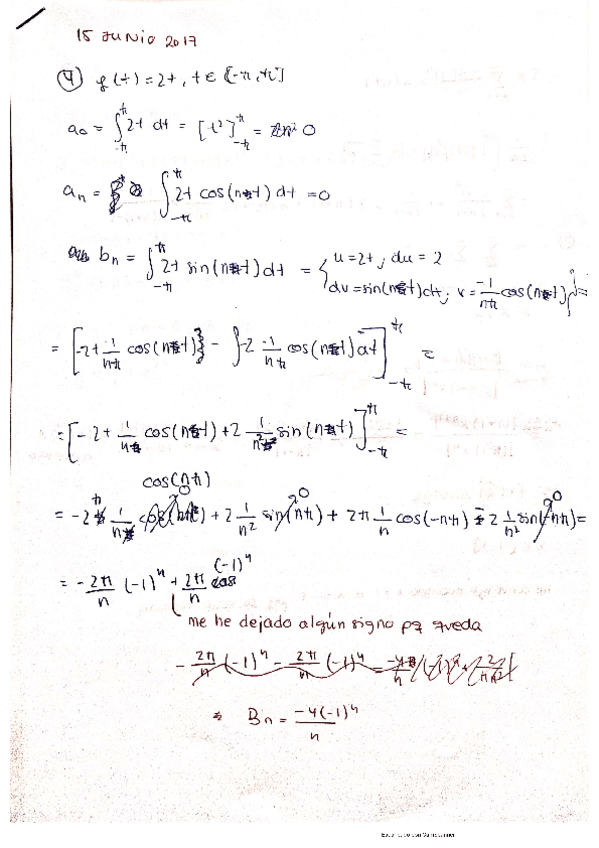 15 JUNIO 2017
④ f(t) = 2t, t ∈ [-π, π]
a₀ = ∫_{-π}^{π} 2t dt = [t²]_{-π}^{π} = 0
aₙ = ∫_{-π}^{π} 2t cos(nt) dt = 0
bₙ = ∫_{-π}^{π} 2t sin(nt) dt = { u = 2t ; du = 2
dv = sin(nt) dt ; v = -1/nπ cos(nt) } =
= [-2t 1/nπ cos(nt) - ∫ -2 1/nπ cos(nt) dt]_{-π}^{π} =
= [-2t 1/n cos(nt) + 2 1/n² sin(nt)]_{-π}^{π} =
cos(nπ)
= -2π 1/n + 2 1/n² sin(nπ) 0 + 2π 1/n cos(-nπ) 2 1/n² sin(-nπ) 0 =
= -2π/n (-1)ⁿ + 2π/n (-1)ⁿ
me he dejado algún signo pq queda
-2π/n (-1)ⁿ - 2π/n (-1)ⁿ
Bₙ = -4(-1)ⁿ/n